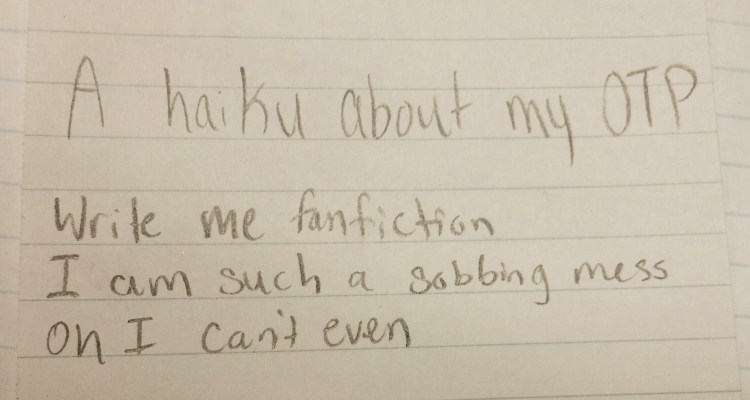 A haiku about my OTP
Write me fanfiction
I am such a sobbing mess
Oh I can't even